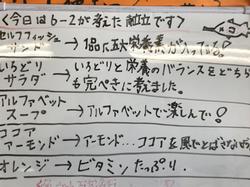 <今日は6-2が考えた献立です>
セルフフィッシュ
サンド → 1品に五大栄養素が入っている!
いろどり
サラダ → いろどりと栄養のバランスをどちら
も完ぺきに考えました。
アルファベット
スープ → アルファベットで楽しんで!
ココア
アーモンド → アーモンド…ココアを風でとばさないで
オレンジ → ビタミンたっぷり.